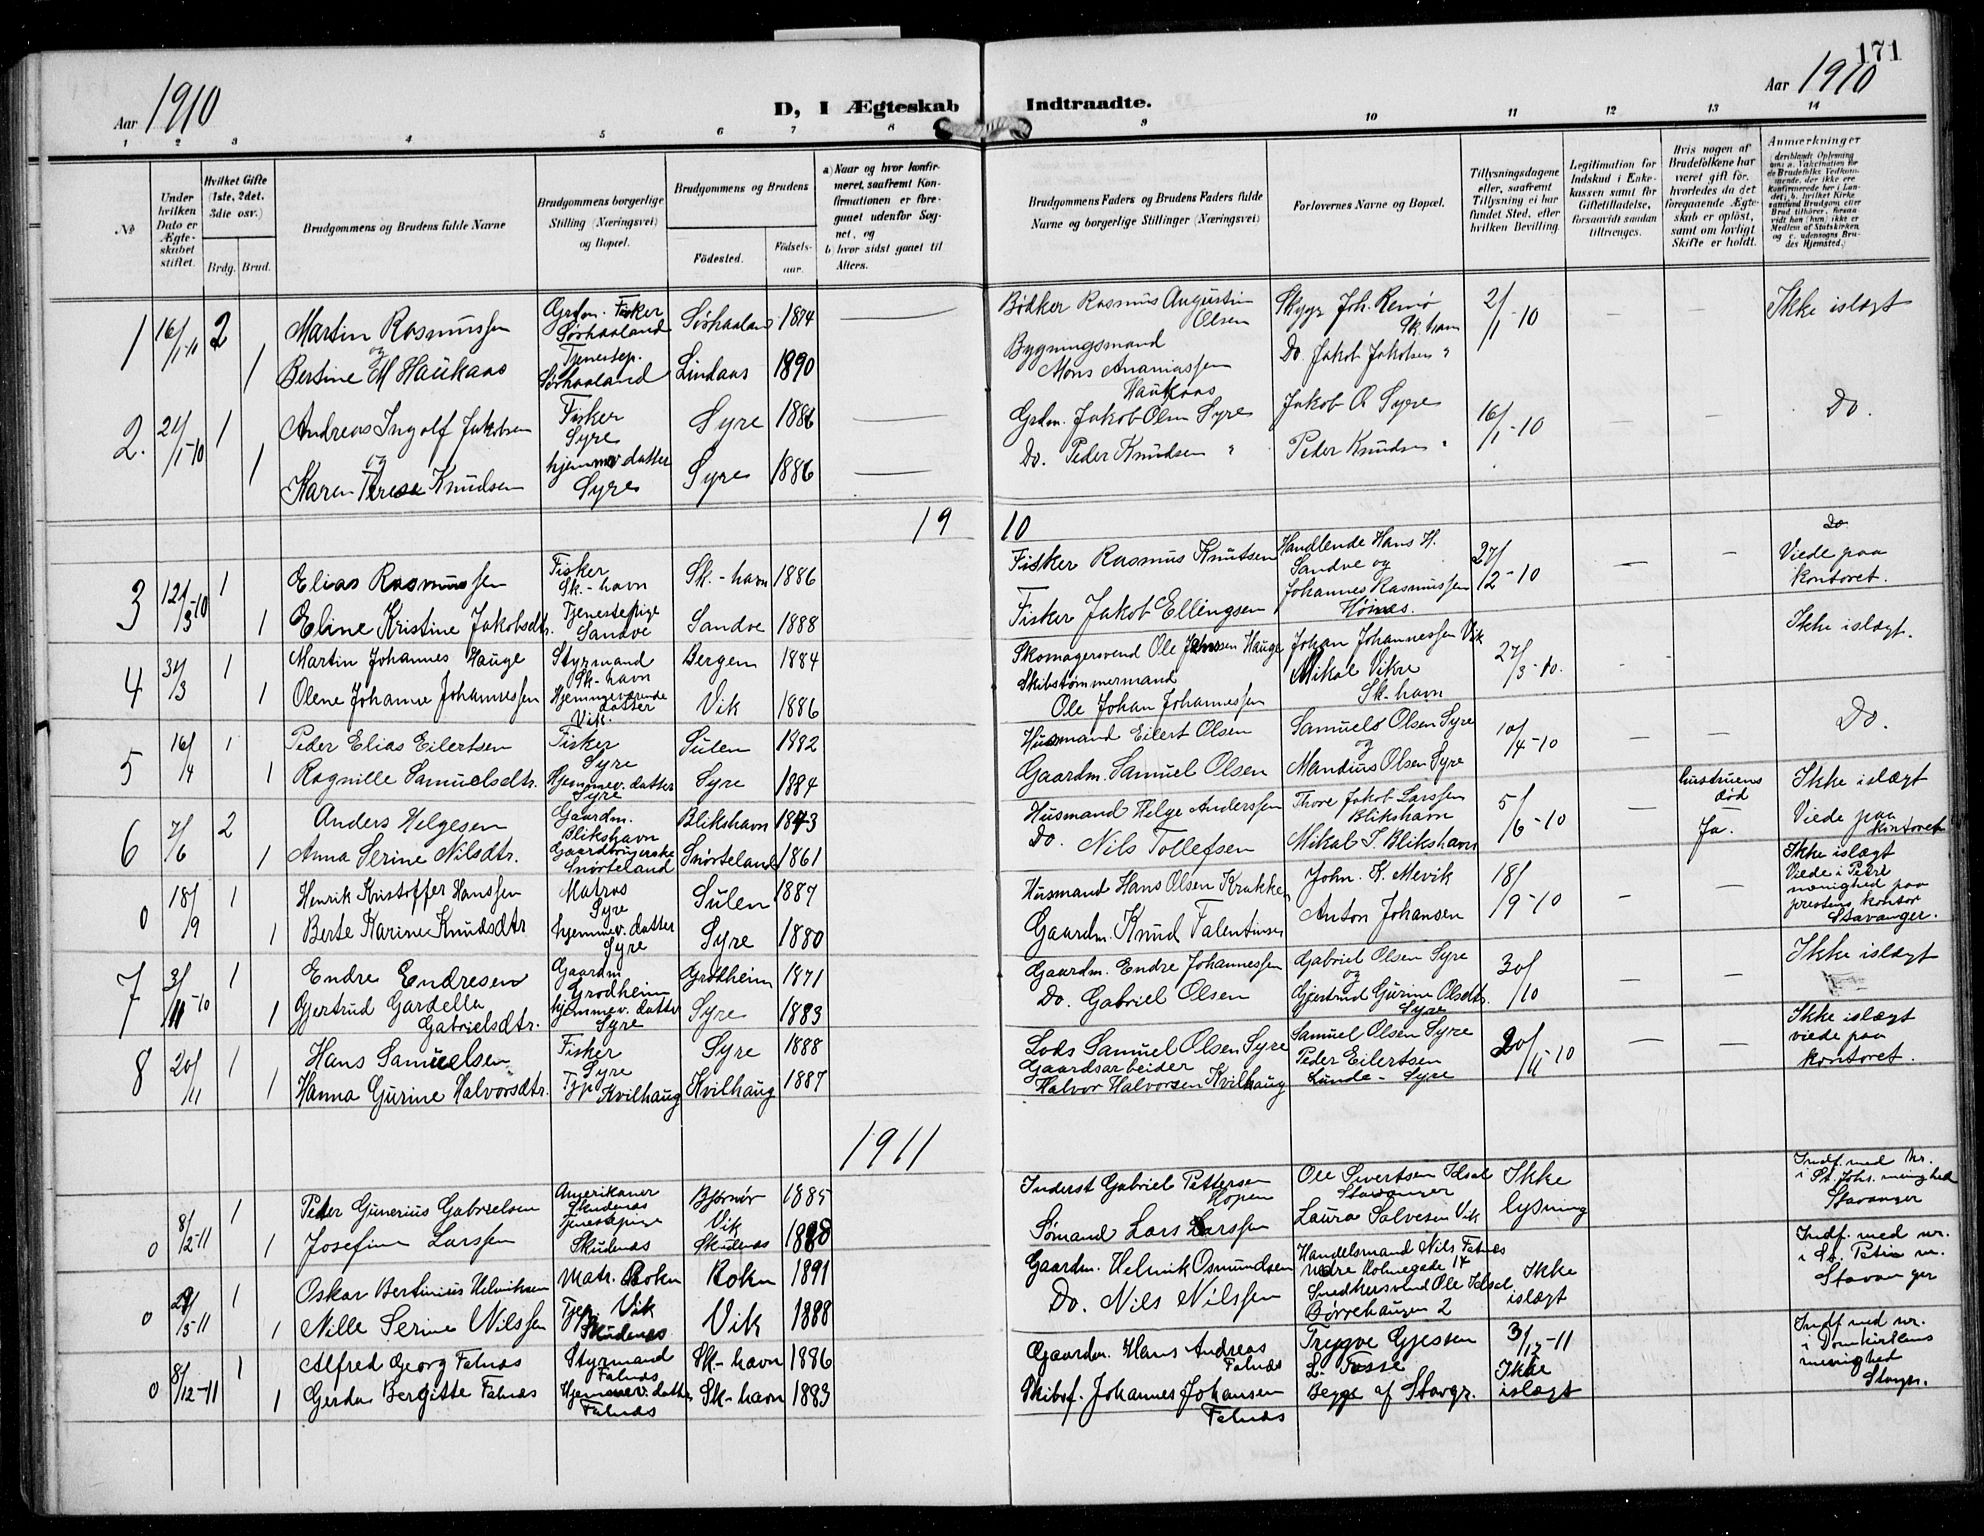 171
Aar 1910
D, I Ægteskab Indtraadte.
Aar 1910
1 2 3 4 5 6 7 8 9 10 11 12 13 14
No
Under hvilken Dato er Ægteskabet stiftet.
Hvilket Gifte (1ste, 2det, 3die osv.)
Brdg. Brud.
Brudgommens og Brudens fulde Navne
Brudgommens borgerlige Stilling (Næringsvei) og Bopæl.
Brudgommens og Brudens
Fødested.
Fødsels-aar.
a) Naar og hvor konfirmeret, saafremt Konfirmationen er foregaaet udenfor Sognet, og
b) hvor sidst gaaet til Alters.
Brudgommens Faders og Brudens Faders fulde Navne og borgerlige Stillinger (Næringsvei)
Forlovernes Navne og Bopæl.
Tillysningsdagene eller, saafremt Tillysning ei har fundet Sted, efter hvilken Bevilling.
Legitimation for Indskud i Enkekassen samt for Giftetilladelse, forsaavidt saadan tiltrænges.
Hvis nogen af Brudefolkene har været gift før, hvorledes da det foregaaende Ægteskab er opløst, samt om lovligt Skifte er holdt.
Anmerkninger
1 16/1-10 2 Martin Rasmussen Grdm. Fisker Sørhaaland Sørhaaland 1874 Bødker Rasmus Augustin Olsen Skypr Joh. Remø Sk. havn 2/1-10 — — Ikke islægt
og
1 Bertine M Haukaas Tjenestep. Sørhaaland Lindaas 1890 Bygningsmand Mons Ananiassen Haukaas Do. Jakob Jakobsen "
2. 21/1-10 1 Andreas Ingolf Jakobsen Fisker Syre Syre 1886 Grdm. Jakob Olsen Syre Jakob O Syre 16/1-10 — — Do.
og
1 Karen Terese Knudsen hjemmev. datter Syre Syre 1886 Do. Peder Knudsen " Peder Knudsen "
1910
3 12/3-10 1 Elias Rasmussen Fisker Sk.-havn Sk.-havn 1886 Fisker Rasmus Knutsen Handlende Hans H. Sandve og 27/2-10 — — Do Viede paa kontoret.
1 Eline Kristine Jakobsdtr. Tjenestepige Sandve Sandve 1888 Fisker Jakob Ellingsen Johannes Rasmussen Høines.
4 31/3 1 Martin Johannes Hauge Styrmand Sk-havn Bergen 1884 Skomagersvend Ole Hauge Johan Johannessen Vik 27/3-10. - - Ikke islægt.
1 Olene Johanne Johannessen Hjemmeværende datter Vik. Vik 1886 Skibstømmermand Ole Johan Johannessen Mikal Vikre Sk-havn
5 16/4 1 Peder Elias Eilertsen Fisker Syre Sulen 1882 Husmand Eilert Olsen Samuels Olsen Syre og 10/4-10 — — Do.
1 Ragnille Samuelsdtr. Hjemmev. datter Syre Syre 1884 Gaardm. Samuel Olsen Mandius Olsen Syre
6 7/6 2 Anders Helgesen Gaardm. Blikshavn Blikshavn 1843 Husmand Helge Anderssen Thore Jakob Larssen Blikshavn 5/6-10 — hustruens død Ikke islægt
1 Anna Serine Nilsdtr. Gaardbrugerske Snørteland Snørteland 1861 Do. Nils Tollefsen Mikal S. Blikshavn Ja. Viede paa kontoret
0 18/9 1 Henrik Kristoffer Hanssen Matros Syre Sulen 1887 Husmand Hans Olsen Krakken John. K. Mevik 18/9-10 — — Ikke islægt Viede i Petri menighed paa prestens kontor Stavanger.
1 Berte Karine Knudsdtr hjemmev. datter Syre Syre 1880 Gaardm. Knud Talentinsen Anton Johansen
7 3/11-10 1 Endre Endresen Gaardm Grødheim Grødheim 1871 Gaardm. Endre Johannessen Gabriel Olsen Syre og 30/10 — — Ikke islægt
1 Gjertrud Gardella Gabrielsdtr. hjemmev. datter Syre Syre 1883 Do. Gabriel Olsen Gjertrud Gurine Olsdtr. Syre
8 20/11 1 Hans Samuelsen Fisker Syre Syre 1888 Lods Samuel Olsen Syre Samuel Olsen Syre 20/11-10 — — Ikke islægt viede paa kontoret.
1 Hanna Gurine Halvorsdtr. Tjp Kvilhaug Kvilhaug 1887 Gaardsarbeider Halvor Halvorsen Kvilhaug Peder Eilertsen Lunde - Syre
1911
0 8/2-11 1 Peder Gunerius Gabrielsen Amerikaner Skudenæs Bjørnør 1885 Inderst Gabriel Pettersen Hopen Ole Sivertsen Idsal Stavanger Ikke lysning Indf. med Nr. i St. Johs. menighed Stavanger
1 Josefine Larssen Tjenestepige Skudenæs Vik Skudenæs 1888 Sømand Lars Larssen Laura Salvesen Vik
0 1 Oskar Bertinius Helviksen Matr. Bokn Bokn 1891 Gaardm. Helmik Osmundsen Handelsmand Nils Falnes nedre Holmegade 14 Ikke islægt Indf. med nr. i St. Petri m. Stavanger
1 Nille Serine Nilssen Tjep. Vik Skudenæs Vik 1888 Do. Nils Nilssen Snedkersvend Ole Idsal Børrehaugen 2
0 8/12-11 1 Alfred Georg Falnæs Styrmand Falnæs Sk-havn 1886 Gaardm. Hans Andreas Falnæs Trygve Gjessen 3/12-11 Indf med nr. i Domkirkens menighed Stavgr.
1 Gerda Bergitte Falnæs Hjemmev. datter Falnæs Sk-havn 1883 Skibsf. Johannes Johansen Falnæs L. Fosse Begge af Stavgr. Ikke islægt